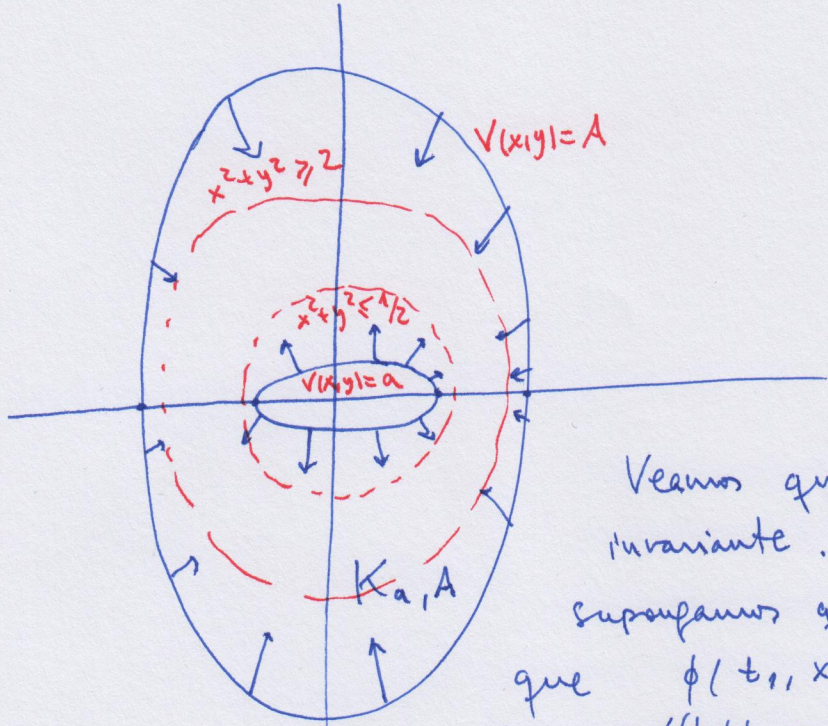 V(x,y)=A
x²+y² ≥ 2
x²+y² ≤ 1/2
V(x,y)=a
K_{a,A}
Veamos qu
invariante.
supongamos q
que φ(t₁, x